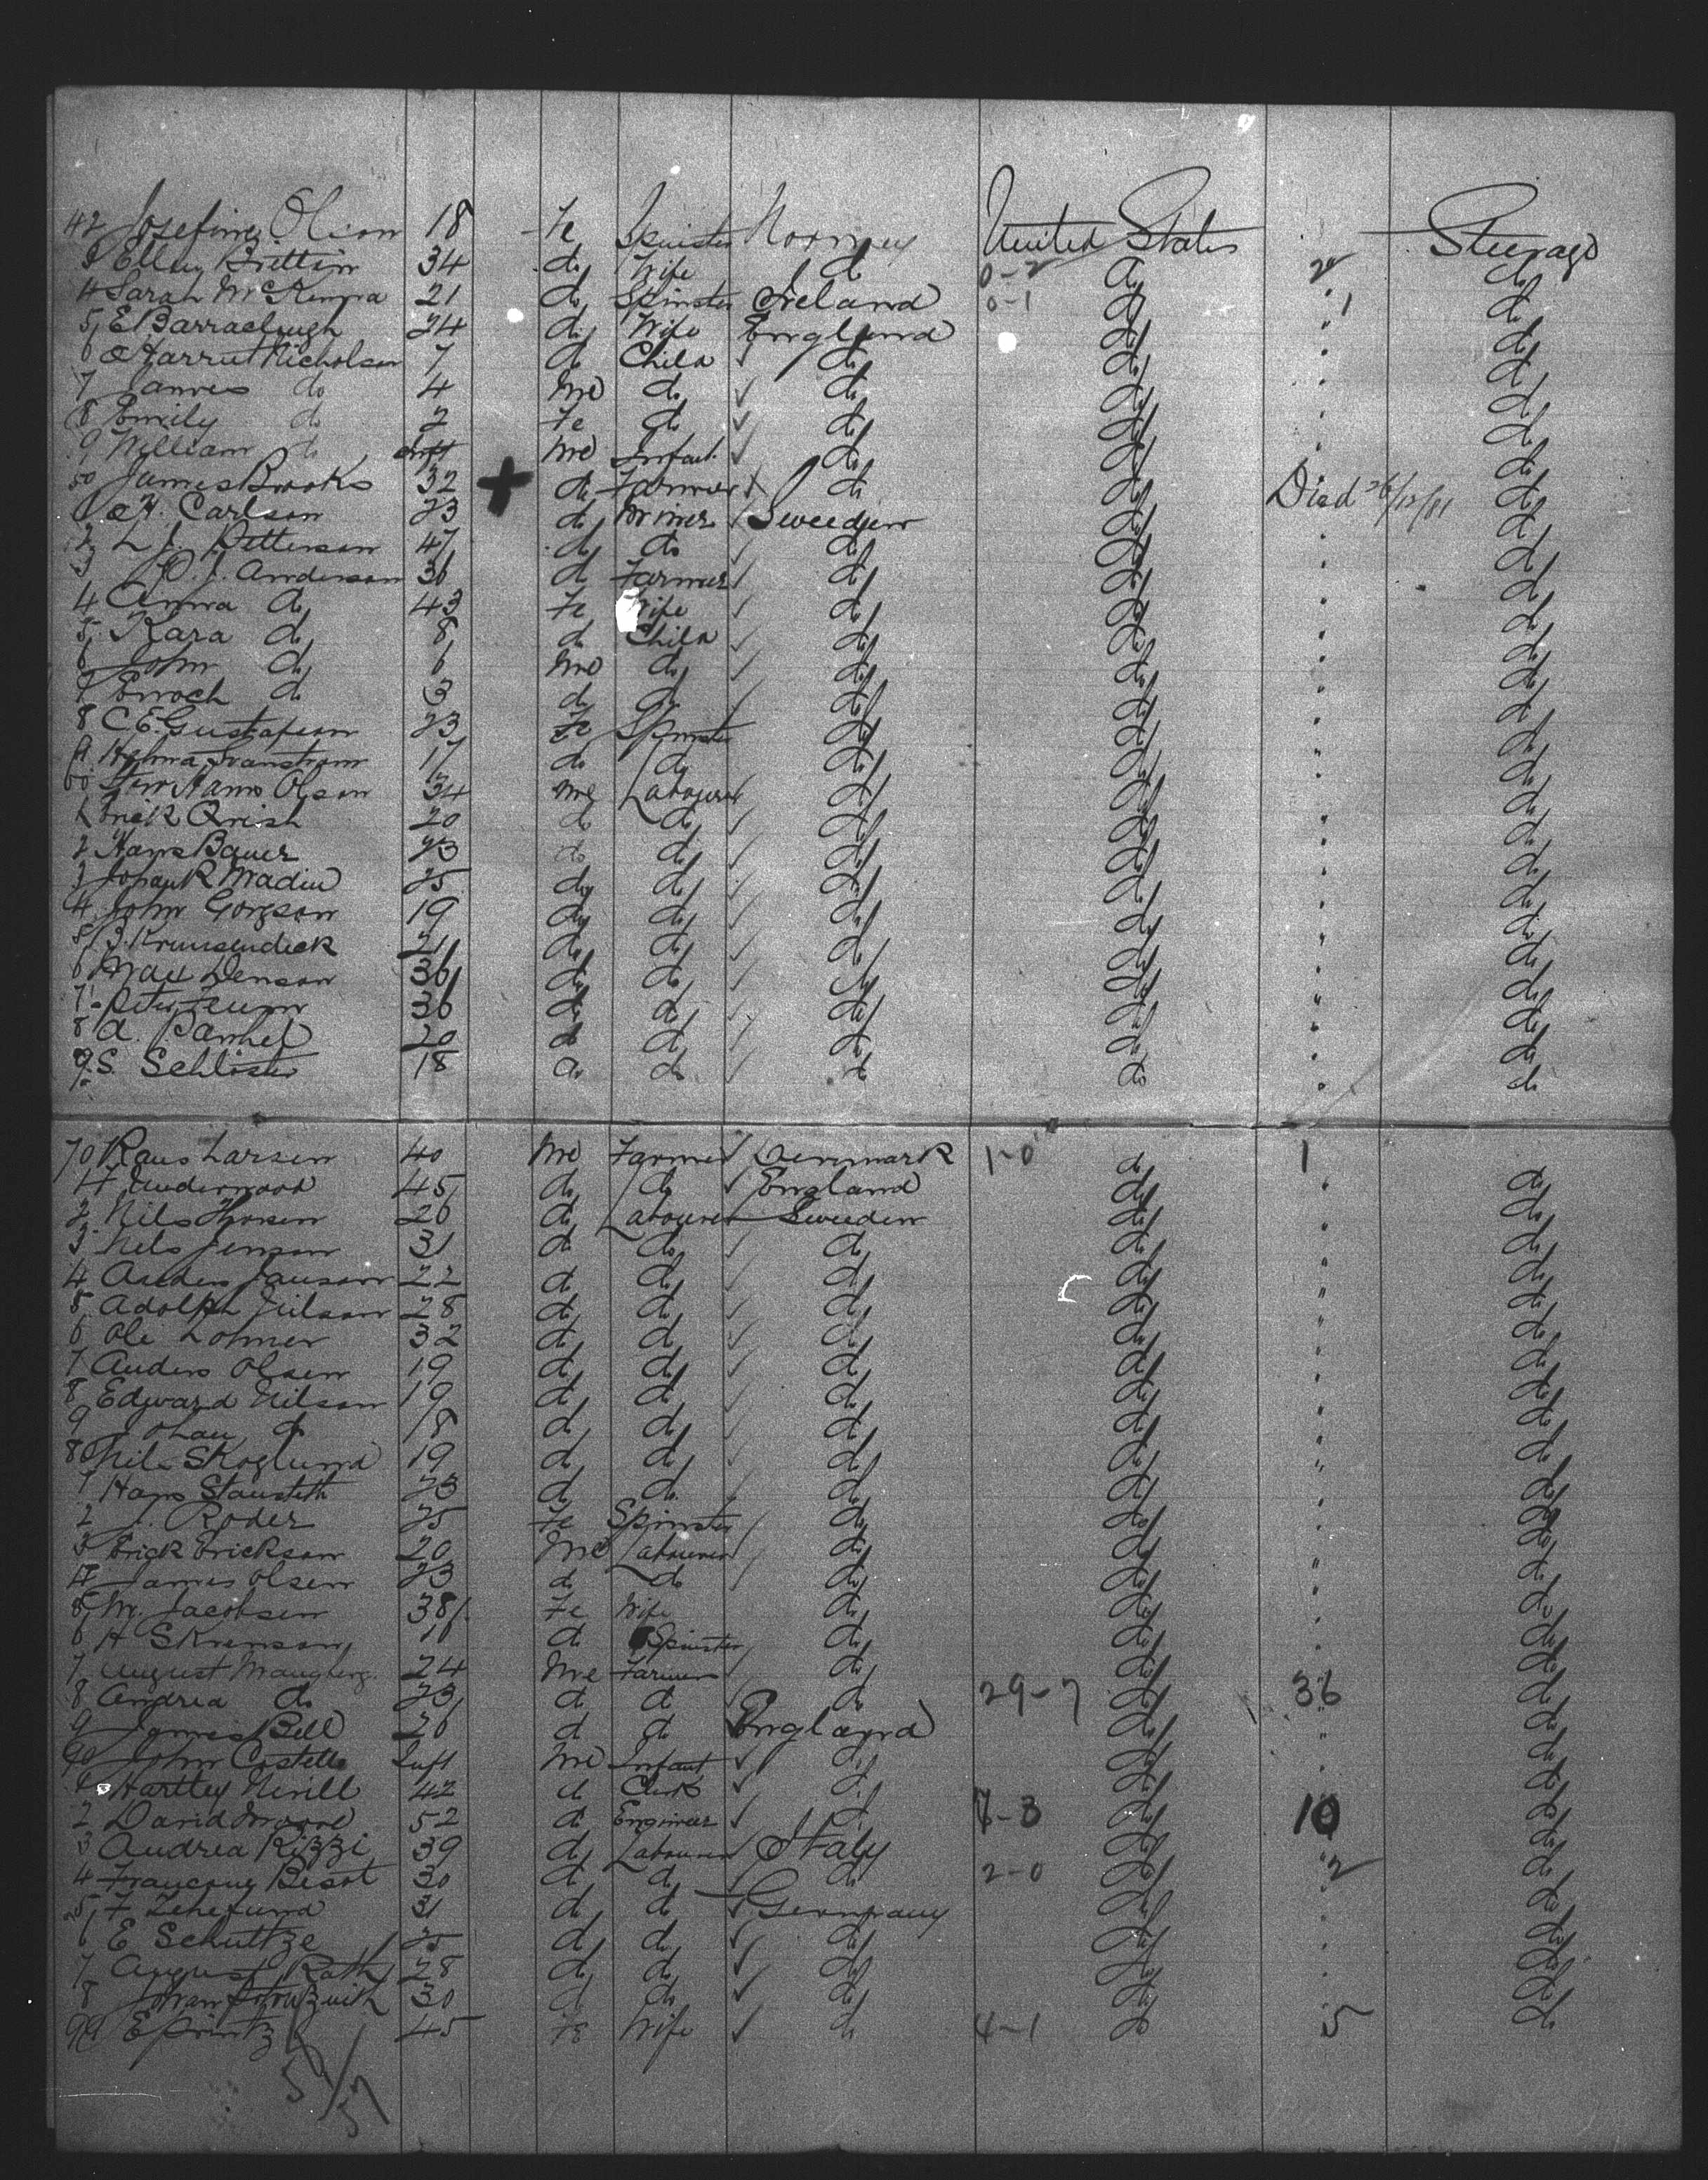 42 Josefine Olson 18 Fe Spinster Norway United States " Steerage
3 Ellen Brittin 34 do Wife do 0-2 do 2 do
4 Sarah McKenna 21 do Spinster Ireland 0-1 do 1 do
5 E Barraclough 24 do Wife England do " do
6 Harriet Nicholson 7 do Child do do " do
7 James do 4 Me do do do " do
8 Emily do 2 Fe do do do " do
9 William do Inft Me Infant do do " do
50 James Brooks 32 do Farmer do do Died 26/12/81 do
1 A. Carlson 23 do Miner Sweeden do " do
2 L J. Petterson 47 do do do do " do
3 P. J. Anderson 36 do Farmer do do " do
4 Anna do 43 Fe Wife do do " do
5 Kara do 8 do Child do do " do
6 John do 6 Me do do do " do
7 Enoch do 3 do do do do " do
8 C E. Gustafson 23 Fe Spinster do do " do
9 Helma Svanstrom 17 do do do do " do
60 Hans Olson 34 Me Labourer do do " do
1 Erick 20 do do do do " do
2 Hans Bauer 23 do do do do " do
3 25 do do do do " do
4 John Gorgson 19 do do do do " do
5 B. Krunsendick 21 do do do do " do
6 Max Denson 36 do do do do " do
7 Peter 36 do do do do " do
8 A. 20 do do do do " do
9 S. 18 do do do do " do
70 Rans Larsen 40 Me Farmer Denmark 1-0 do 1
1 Underwood 45 do do England do " do
2 Nils Thorsen 26 do Labourer Sweeden do " do
3 Nels Jenson 31 do do do do " do
4 Anders Jauson 22 do do do do " do
5 Adolph Nilson 28 do do do do " do
6 Ole Lohmer 32 do do do do " do
7 Anders Olsen 19 do do do do " do
8 Edward Nilson 19 do do do do " do
9 Johan do 18 do do do do " do
80 Nils Skoglund 19 do do do do " do
1 Hans 23 do do do do " do
2 J. Roder 25 Fe Spinster do do " do
3 Erick Erickson 20 Me Labourer do do " do
4 James Olsen 23 do do do do " do
5 M. Jacobsen 38 Fe Wife do do " do
6 H 16 do Spinster do do " do
7 August 24 Me Farmer do do do
8 Andrea do 23 do do do 29-7 do 36 do
9 James Bell 26 do do England do " do
90 John Costello Inft Me Infant do do " do
1 Hartley Nevill 42 do Clerk do do do
2 David Moore 52 do Engineer do 7-3 do 10 do
3 Andrea Rizzi 39 do Labourer Italy do " do
4 Bisot 30 do do do 2-0 do 2 do
5 F 31 do do Germany do " do
6 E Schultze 25 do do do do " do
7 August Rath 28 do do do do " do
8 Johan 30 do do do do " do
99 E Printz 45 Fe Wife do 4-1 do 5 do